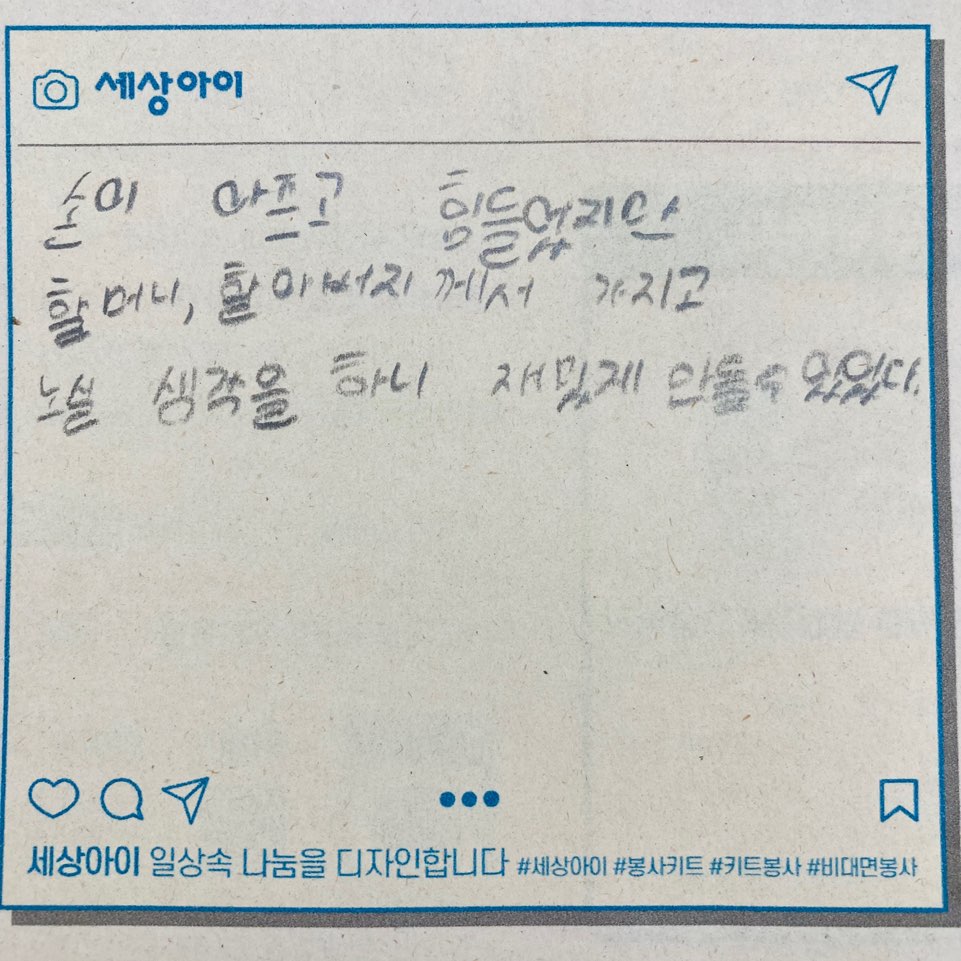 세상아이
손이 아프고 힘들었지만
할머니, 할아버지께서 가지고
노실 생각을 하니 재밌게 만들수 있었다.
세상아이 일상속 나눔을 디자인합니다 #세상아이 #봉사키트 #키트봉사 #비대면봉사